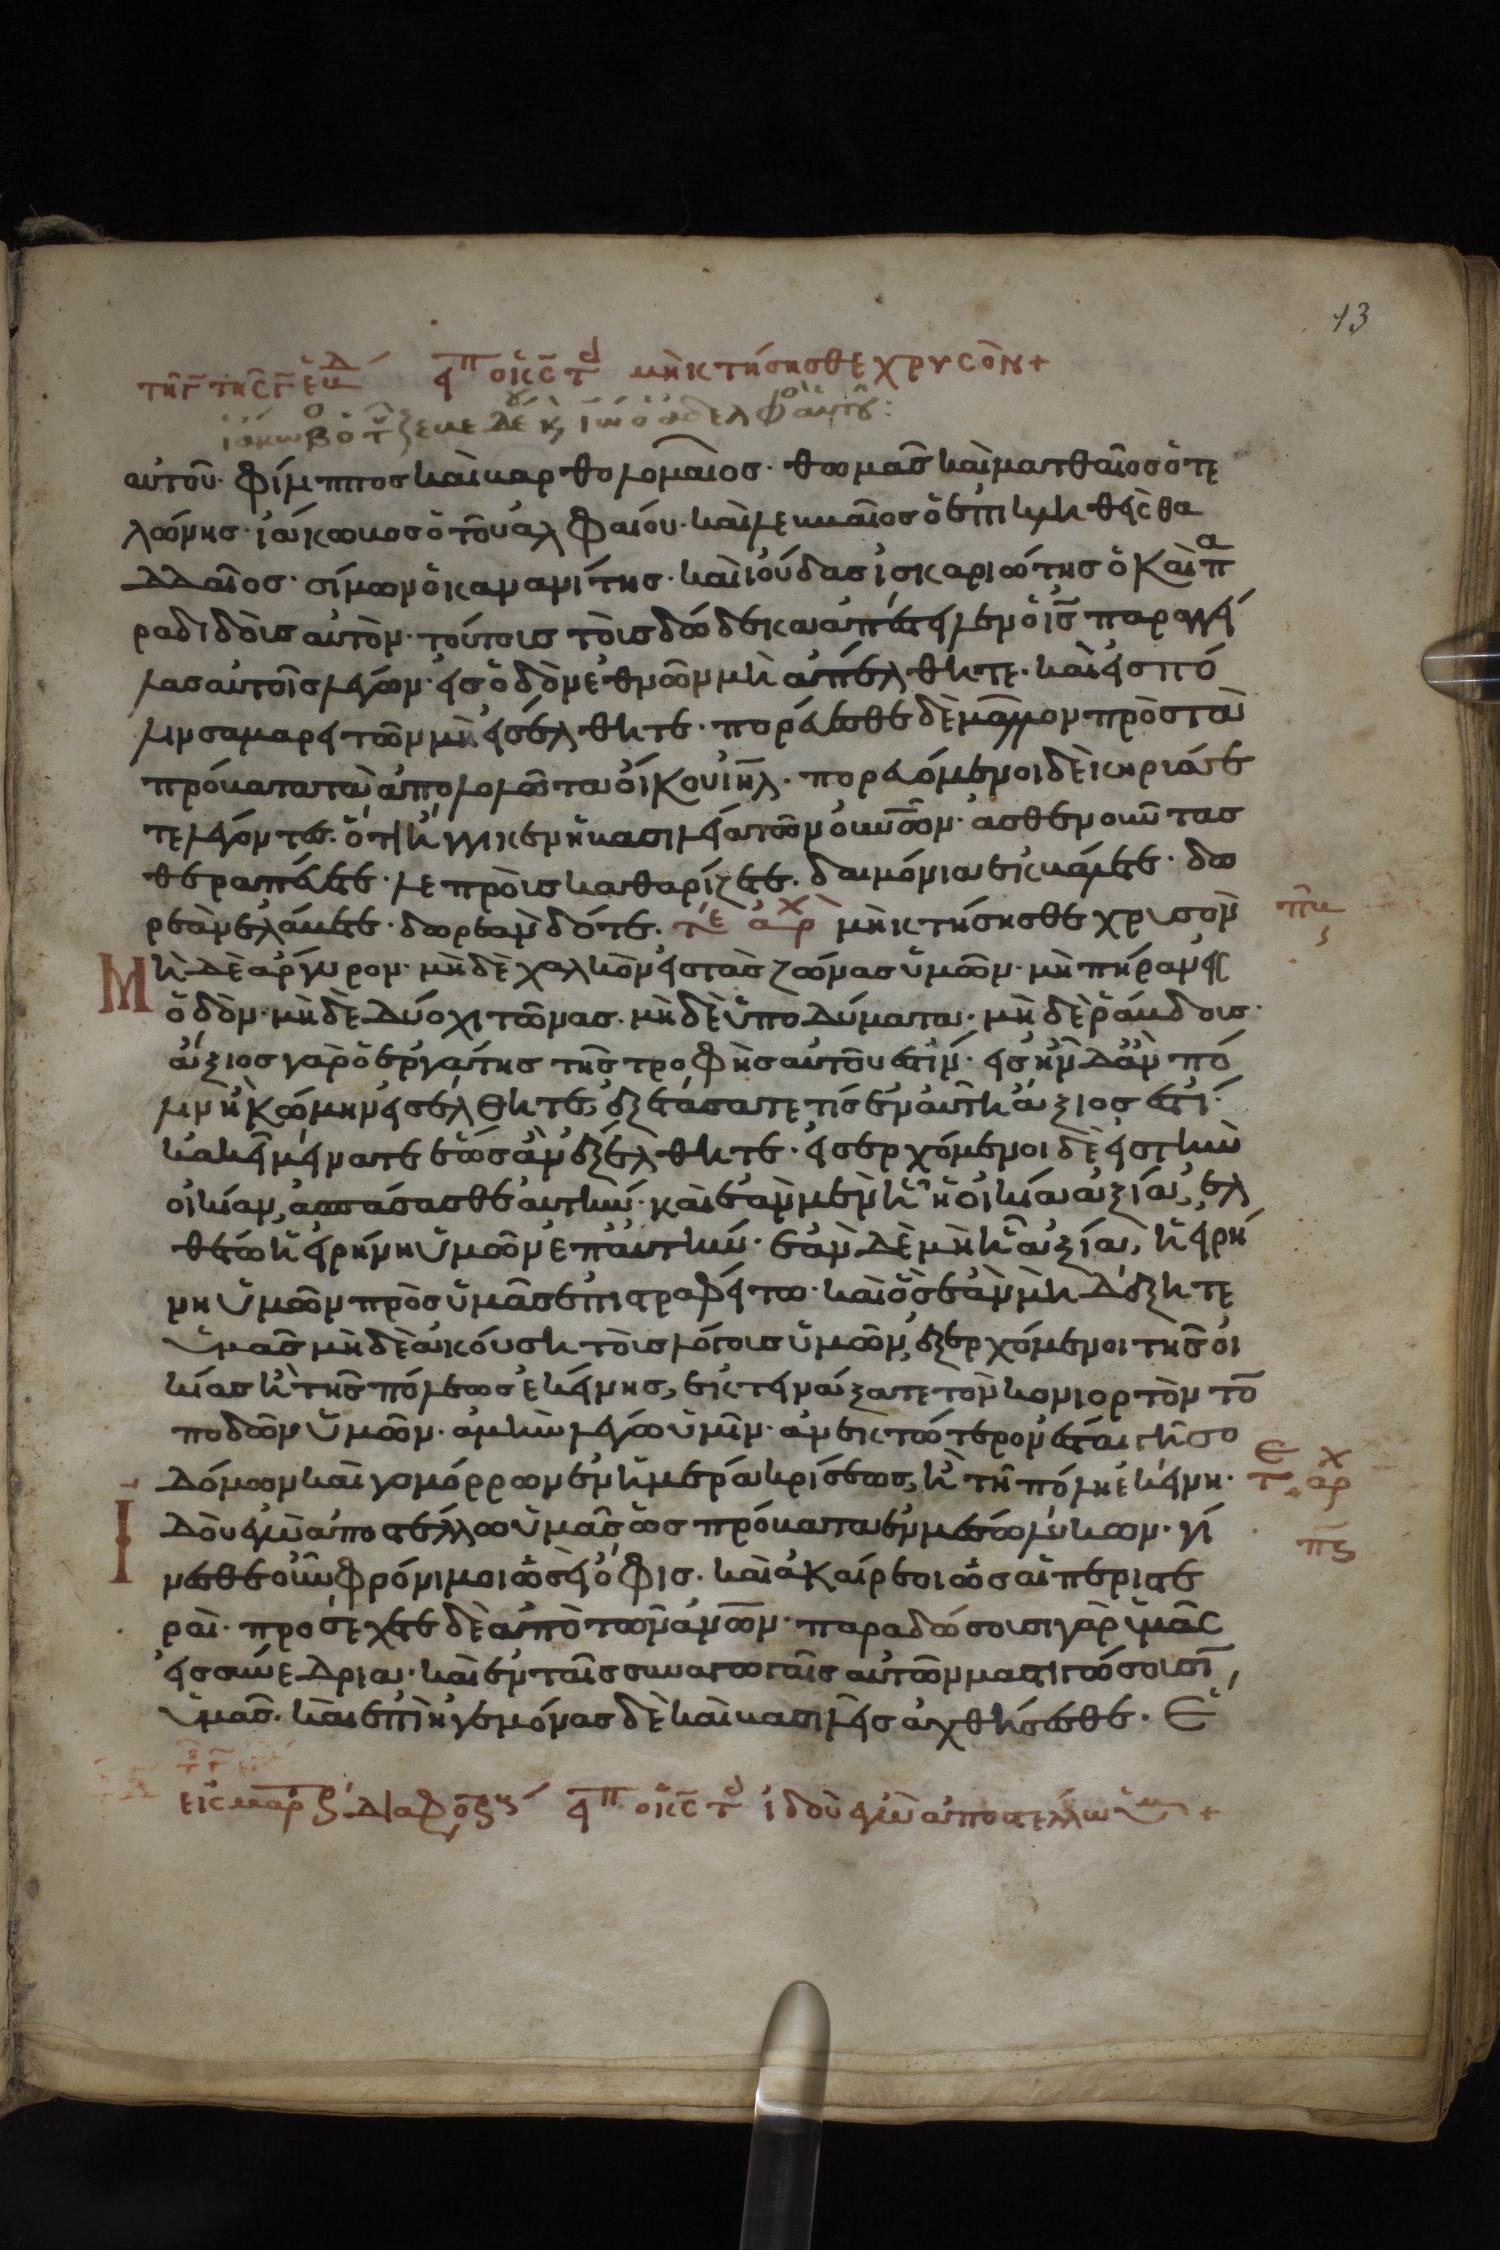 13
μὴ κτήσησθε χρυσὸν +
ἰάκωβο ὁ τ ζεβεδε κ ιω ὁ ἀδελφο αυτοῦ:
αὐτοῦ· φίλιππος καὶ βαρθολομαῖος· θωμᾶς καὶ ματθαῖος ὁ τε
λώνης· ἰάκωβος ὁ τοῦ ἀλφαίου· καὶ λεββαῖος ὁ ἐπικληθεὶς θα
δδαῖος· σίμων ὁ κανανίτης· καὶ ἰούδας ἰσκαριώτης ὁ καὶ πα
ραδιδοὺς αὐτὸν· τούτους τοὺς δώδεκα ἀπέστειλεν ὁ ις παραγγεί
λας αὐτοῖς λέγων· εἰς ὁδὸν ἐθνῶν μὴ ἀπέλθητε· καὶ εἰς πό
λιν σαμαρειτῶν μὴ εἰσέλθητε· πορεύεσθε δὲ μᾶλλον πρὸς τὰ
πρόβατα τὰ ἀπολωλότα οἴκου ιηλ· πορευόμενοι δὲ κηρύσσετε
λέγοντες· ὅτι ἤγγικεν ἡ βασιλεία τῶν οὐνῶν· ἀσθενοῦντας
θεραπεύετε· λεπροὺς καθαρίζετε· δαιμόνια ἐκβάλλετε· δω
ρεὰν ἐλάβετε· δωρεὰν δότε· τέ ἀρχ μὴ κτήσησθε χρυσὸν
Μηδὲ ἄργυρον· μὴ δὲ χαλκὸν εἰς τὰς ζώνας ὑμῶν· μὴ πήραν εἰς
ὁδὸν· μὴ δὲ δύο χιτῶνας· μὴ δὲ ὑποδύματα· μὴ δὲ ῥάβδους·
ἄξιος γὰρ ὁ ἐργάτης τῆς τροφῆς αὐτοῦ ἐστίν· εἰς ἣν δ' ἂν πό
λιν ἢ κώμην εἰσέλθητε, ἐξετάσατε τίς ἐν αὐτῆ ἄξιος ἐστί·
κἀκεῖ μείνατε ἕως ἂν ἐξέλθητε· εἰσερχόμενοι δὲ εἰς τὴν
οἰκίαν, ἀσπάσασθε αὐτὴν· καὶ ἐὰν μὲν ἦ ἡ οἰκία ἀξία, ἐλ
θέτω ἡ εἰρήνη ὑμῶν ἐπ' αὐτὴν· ἐὰν δὲ μὴ ἦ ἀξία, ἡ εἰρή
νη ὑμῶν πρὸς ὑμᾶς ἐπιστραφείτω· καὶ ὃς ἐὰν μὴ δέξητε
ὑμᾶς μὴ δὲ ἀκούση τοὺς λόγους ὑμῶν, ἐξερχόμενοι τῆς οἰ
κίας ἢ τῆς πόλεως ἐκείνης, ἐκτεινάξατε τὸν κονιορτὸν τῶ
ποδῶν ὑμῶν· ἀμὴν λέγω ὑμῖν· ἀνεκτώτερον ἔσται γῆ σο
δόμων καὶ γομόρρων ἐν ἡμέρα κρίσεως, ἢ τῆ πόλη ἐκείνη·
Ἰδοὺ ἐγὼ ἀποστέλλω ὑμᾶς ὡς πρόβατα ἐν μέσω λύκων· γί
νεσθε οὖν φρόνιμοι ὡς οἱ ὄφις· καὶ ἀκαίρεοι ὡς αἱ περιστε
ραὶ· προσέχετε δὲ ἀπὸ τῶν ἀνῶν· παραδώσουσι γὰρ ὑμᾶς
εἰς συνέδρια· καὶ ἐν ταῖς συναγωγαῖς αὐτῶν μαστιγώσουσϊ,
ὑμᾶς· καὶ ἐπὶ ἡγεμόνας δὲ καὶ βασιλεῖς ἀχθήσεσθε· Ἕ
ἰδοὺ ἐγὼ ἀποστέλλω ὑμ +